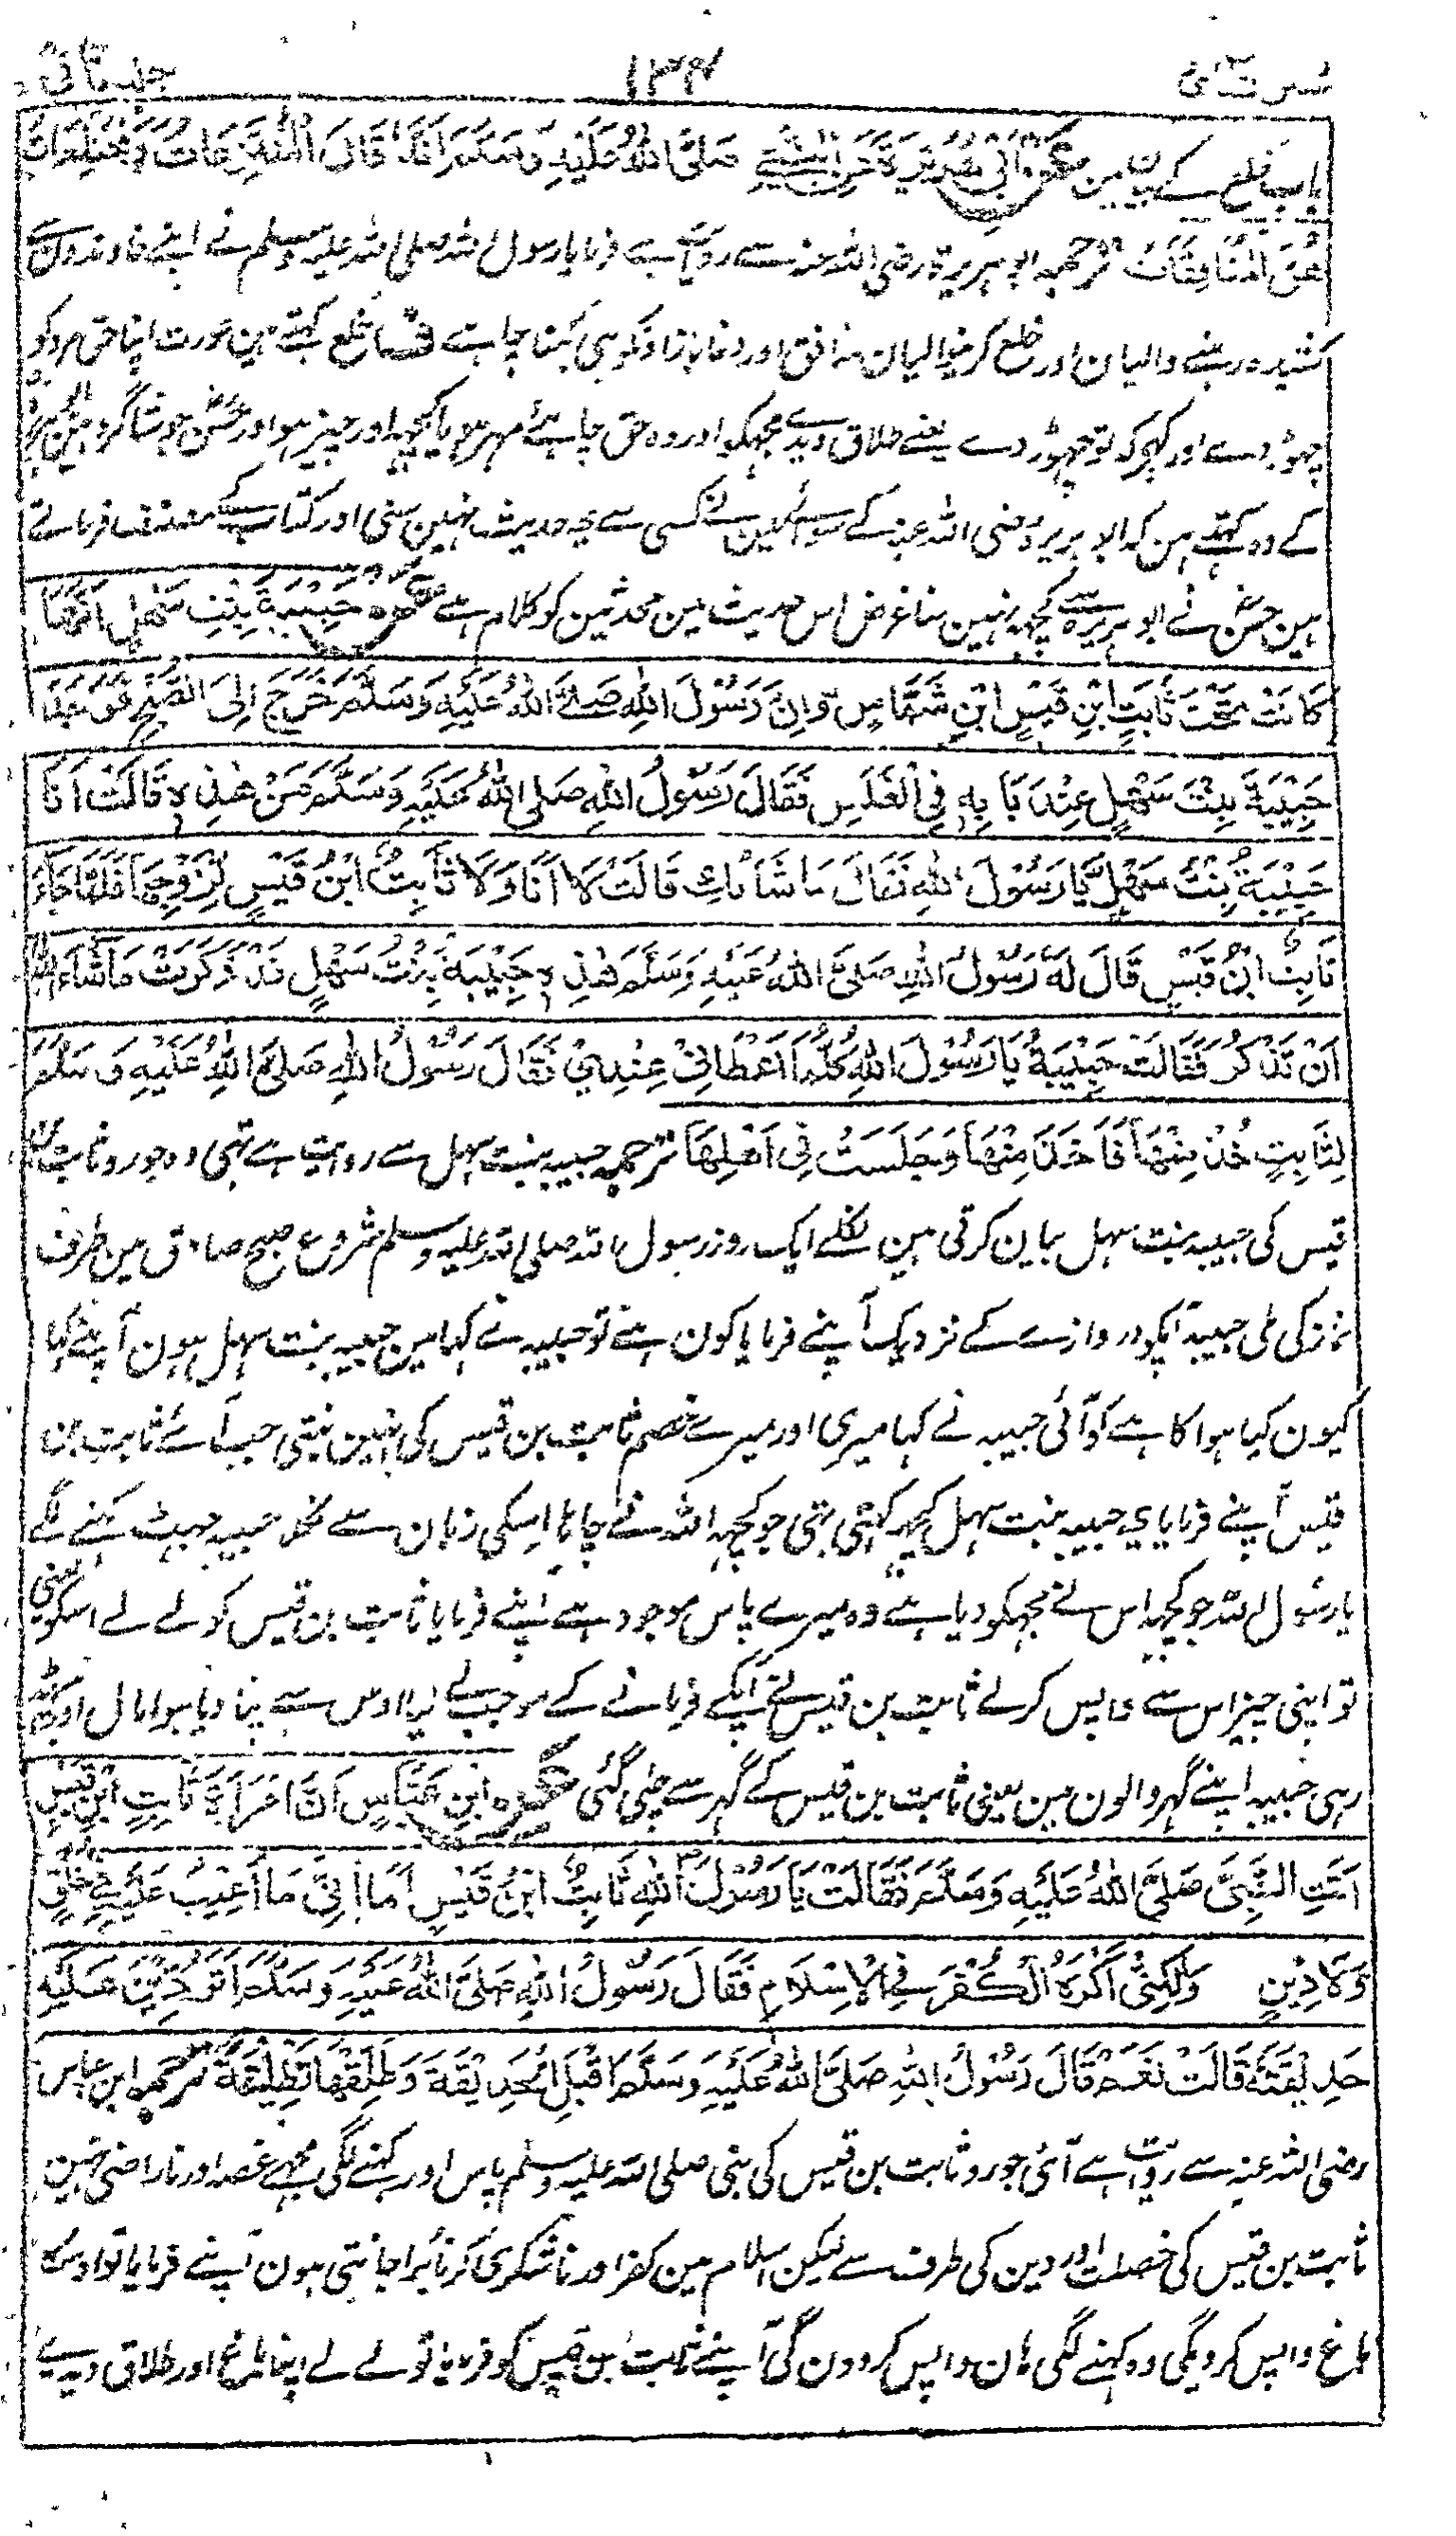 جلد ثانی ١٣٤
باب خلع کے بیان مین عَنْ اَبِیْ هُرَيْرَةَ عَنِ النَّبِيِّ صَلَّی اللهُ عَلَيْهِ وَسَلَّمَ اَنَّهٗ قَالَ الْمُنْتَزِعَاتُ وَالْمُخْتَلِعَاتُ
هُنَّ الْمُنَافِقَاتُ ترجمہ ابو ہریرۃ رضی اللہ عنہ سے روایت ہے فرمایا رسول اللہ صلی اللہ علیہ وسلم نے اپنے خاوندون سے
کشیدہ رہنے والیان اور خلع کرنیوالیان منافق اور دغاباز اونکو ہی کہنا چاہے ف خلع کہتے ہین عورت اپنا حق مرد کو
چہوڑ دے اور کہے کہ تو چہوڑ دے یعنے طلاق دیدے مجہکو اور وہ حق چاہئے مہر ہو یا کچہہ اور چیز ہو اور حسن جو شاگرد ہین
کے وہ کہتے ہین کہ ابو ہریرہ رضی اللہ عنہ کے سوا مین نے کسی سے یہ حدیث نہین سنی اور کتاب کے مصنف فرماتے
ہین حسن نے ابو ہریرہ سے کچہہ نہین سنا غرض اس حدیث مین محدثین کو کلام ہے عَنْ حَبِيْبَةَ بِنْتِ سَهْلٍ اَنَّهَا
كَانَتْ تَحْتَ ثَابِتِ ابْنِ قَيْسِ ابْنِ شَمَّاسٍ وَّاِنَّ رَسُوْلَ اللهِ صَلَّے اللهُ عَلَيْهِ وَسَلَّمَ خَرَجَ اِلَی الصُّبْحِ فَوَجَدَ
حَبِيْبَةَ بِنْتَ سَهْلٍ عِنْدَ بَابِهٖ فِی الْغَلَسِ فَقَالَ رَسُوْلُ اللهِ صَلَی اللهُ عَلَيْهِ وَسَلَّمَ مَنْ هٰذِهٖ قَالَتْ اَنَا
حَبِيْبَةُ بِنْتُ سَهْلٍ يَّا رَسُوْلَ اللهِ فَقَالَ مَا شَأْنُكِ قَالَتْ لَا اَنَا وَلَا ثَابِتُ ابْنُ قَيْسٍ لِزَوْجِهَا فَلَمَّا جَاءَ
ثَابِتُ ابْنُ قَيْسٍ قَالَ لَهٗ رَسُوْلُ اللهِ صَلَّی اللهُ عَلَيْهِ وَسَلَّمَ هٰذِهٖ حَبِيْبَةُ بِنْتُ سَهْلٍ قَدْ ذَكَرَتْ مَاشَاءَ اللهُ
اَنْ تَذْكُرَ فَقَالَتْ حَبِيْبَةُ يَا رَسُوْلَ اللهِ كُلُّمَا اَعْطَانِیْ عِنْدِیْ فَقَالَ رَسُوْلُ اللهِ صَلَّی اللهُ عَلَيْهِ وَسَلَّمَ
لِثَابِتٍ خُذْ مِنْهَا فَاَخَذَ مِنْهَا وَجَلَسَتْ فِی اَهْلِهَا ترجمہ حبیبہ بنت سہل سے روایت ہے تہی وہ جورو ثابت بن
قیس کی حبیبہ بنت سہل بیان کرتی ہین نکلے ایک روز رسول اللہ صلی اللہ علیہ وسلم شروع صبح صادق مین طرف
نماز کی ملی حبیبہ آپکو دروازے کے نزدیک آپنے فرمایا کون ہے تو حبیبہ نے کہا مین حبیبہ بنت سہل ہون آپنے کہا
کیون کیا ہوا کا ہے کو آئی حبیبہ نے کہا میری اور میرے خصم ثابت بن قیس کی نہین بنتی جب آئے ثابت بن
قیس آپنے فرمایا یہ حبیبہ بنت سہل کچہہ کہتی تہی جو کچہہ اللہ نے چاہا اسکی زبان سے نکلا حبیبہ جہٹ کہنے لگے
یا رسول اللہ جو کچہہ اس نے مجہکو دیا ہے وہ میرے پاس موجود ہے آپنے فرمایا ثابت بن قیس کو لے لے اسکو یعنی
تو اپنی چیز اس سے واپس کر لے ثابت بن قیس نے آپکے فرمانے کے موجب لے لیا اوس سے اپنا دیا ہوا مال اور بیٹہہ
رہی حبیبہ اپنے گہر والون مین یعنی ثابت بن قیس کے گہر سے چلی گئی عَنِ ابْنِ عَبَّاسٍ اَنَّ امْرَاَةَ ثَابِتِ ابْنِ قَيْسٍ
اَتَتِ النَّبِیَّ صَلَّی اللهُ عَلَيْهِ وَسَلَّمَ فَقَالَتْ يَا رَسُوْلَ اللهِ ثَابِتُ ابْنُ قَيْسٍ اَمَا اِنِّیْ مَا اَعِيْبُ عَلَيْهِ فِیْ خُلُقٍ
وَّلَا دِيْنٍ وَلٰكِنِّیْ اَكْرَهُ الْكُفْرَ فِی الْاِسْلَامِ فَقَالَ رَسُوْلُ اللهِ صَلَّی اللهُ عَلَيْهِ وَسَلَّمَ اَتَرُدِّيْنَ عَلَيْهِ
حَدِيْقَتَهٗ قَالَتْ نَعَمْ قَالَ رَسُوْلُ اللهِ صَلَّی اللهُ عَلَيْهِ وَسَلَّمَ اقْبَلِ الْحَدِيْقَةَ وَطَلِّقْهَا تَطْلِيْقَةً ترجمہ ابن عباس
رضی اللہ عنہ سے روایت ہے آئی جورو ثابت بن قیس کی نبی صلی اللہ علیہ وسلم پاس اور کہنے لگی مجہے غصہ اور ناراضی نہین
ثابت بن قیس کی خصلت اور دین کی طرف سے لیکن اسلام مین کفر اور ناشکری کرنا برا جانتی ہون آپنے فرمایا تو اوسکا
باغ واپس کر دیگی وہ کہنے لگی ہان واپس کر دون گی آپنے ثابت بن قیس کو فرمایا تو لے لے اپنا باغ اور طلاق دیدے